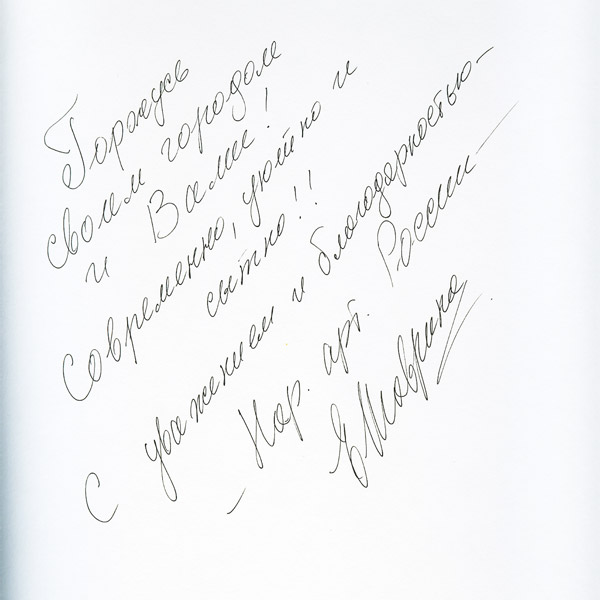 Горжусь
своим городом
и Вами!
Современно, уютно и
сытно!!
С уважением и благодарностью-
- Нар. арт. России -
Е Шаврина